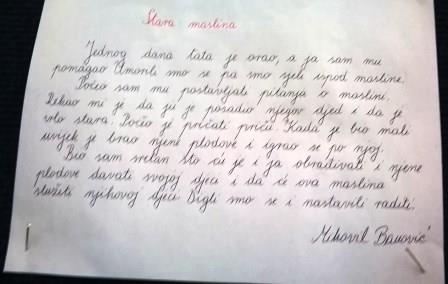 Stara maslina
Jednog dana tata je orao, a ja sam mu
pomagao. Umorili smo se pa smo sjeli ispod masline.
Počeo sam mu postavljati pitanja o maslini.
Rekao mi je da ju je posadio njegov djed i da je
vrlo stara. Počeo je pričati priču. Kada je bio mali
uvijek je brao njene plodove i igrao se po njoj.
Bio sam sretan što ću je i ja obrađivati i njene
plodove davati svojoj djeci i da će ova maslina
služiti njihovoj djeci. Digli smo se i nastavili raditi.
Mihovil